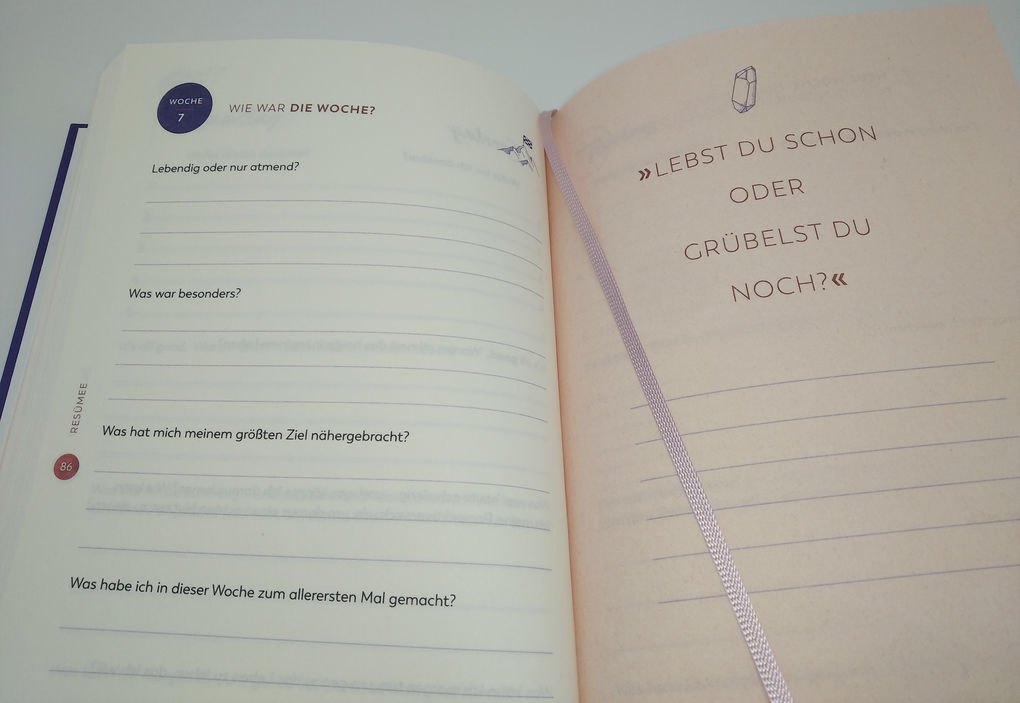 WOCHE
7
WIE WAR DIE WOCHE?
Lebendig oder nur atmend?
Was war besonders?
Was hat mich meinem größten Ziel nähergebracht?
Was habe ich in dieser Woche zum allerersten Mal gemacht?
RESÜMEE
86
»LEBST DU SCHON
ODER
GRÜBELST DU
NOCH?«